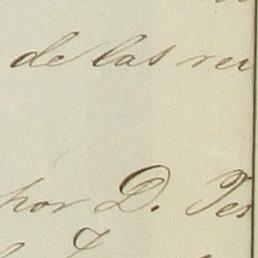 de las rei
por D. Tes